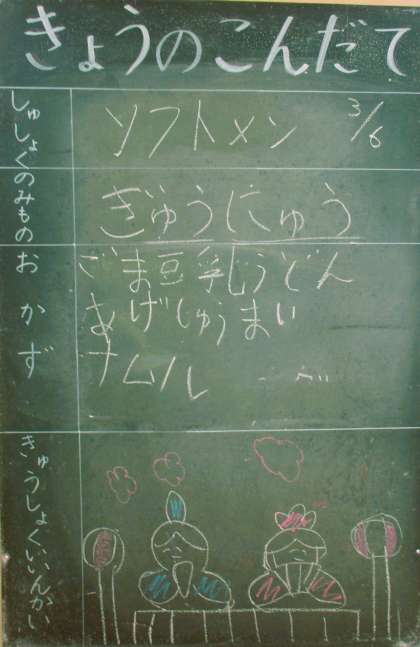 きょうのこんだて
しゅしょく
ソフトメン 3/6
のみもの
ぎゅうにゅう
おかず
ごま豆乳うどん
あげしゅうまい
ナムル
きゅうしょくいいんかい